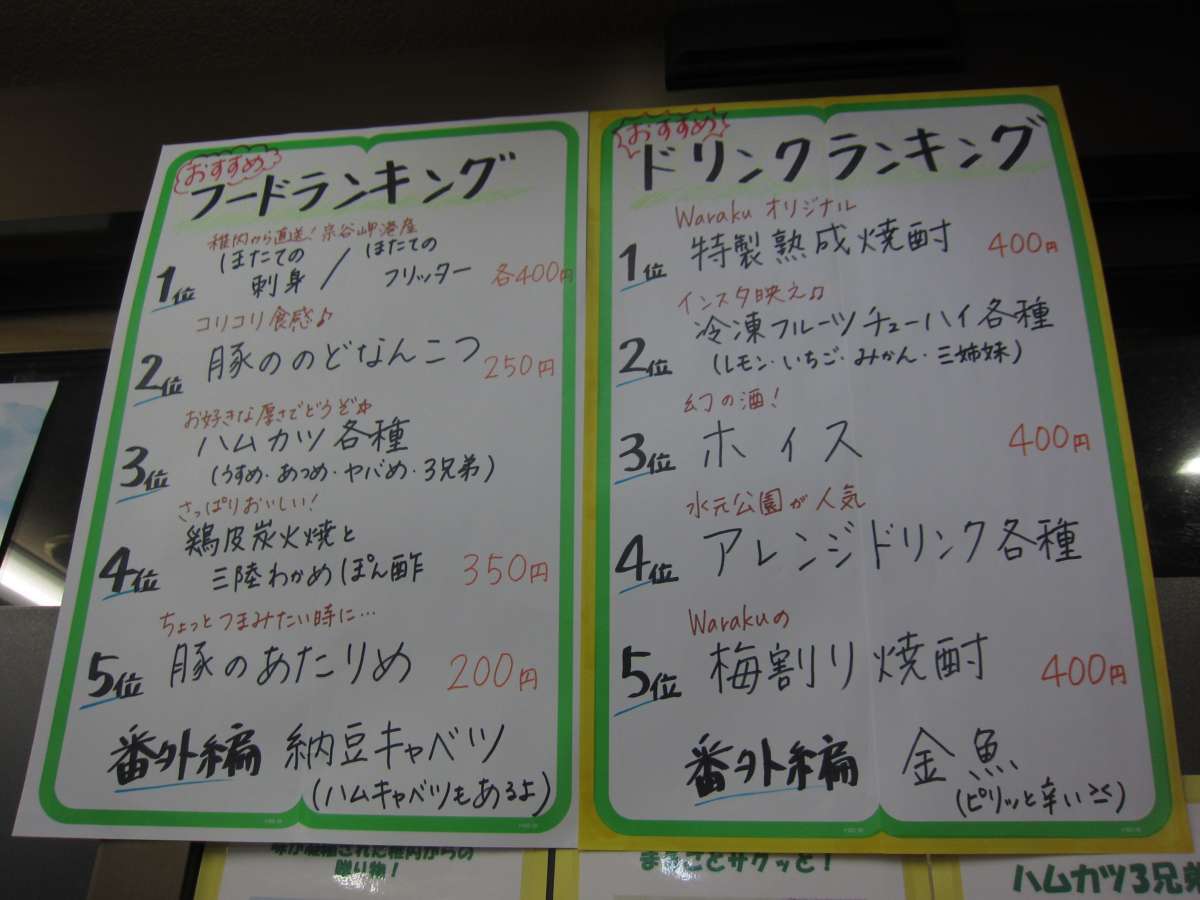 おすすめ
フードランキング
稚内から直送!宗谷岬港産
1位 ほたての刺身/ほたてのフリッター 各400円
コリコリ食感♪
2位 豚ののどなんこつ 250円
お好きな厚さでどうぞ
3位 ハムカツ各種
(うすめ・あつめ・ヤバめ・3兄弟)
さっぱりおいしい!
4位 鶏皮炭火焼と
三陸わかめぽん酢 350円
ちょっとつまみたい時に…
5位 豚のあたりめ 200円
番外編 納豆キャベツ
(ハムキャベツもあるよ)
おすすめ
ドリンクランキング
Waraku オリジナル
1位 特製熟成焼酎 400円
インスタ映え♫
2位 冷凍フルーツチューハイ各種
(レモン・いちご・みかん・三姉妹)
幻の酒!
3位 ホイス 400円
水元公園が人気
4位 アレンジドリンク各種
Warakuの
5位 梅割り焼酎 400円
番外編 金魚
(ピリッと辛い)
贈り物!
まるごとサクッと!
ハムカツ3兄弟